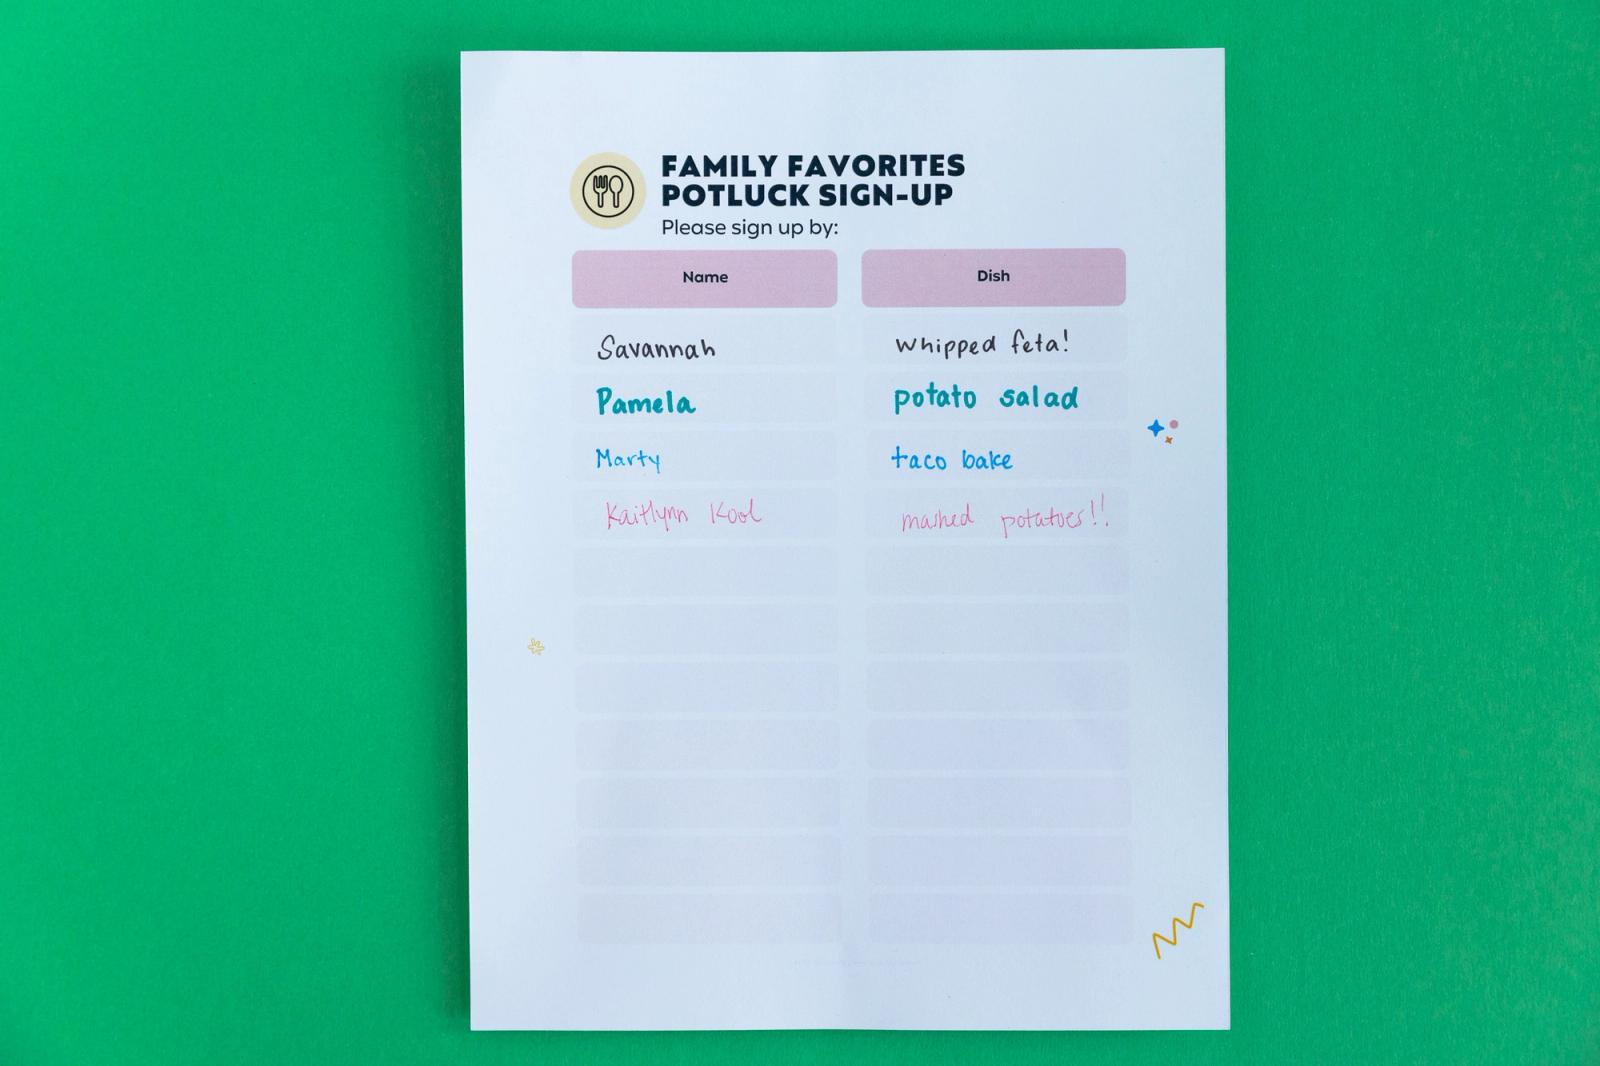 FAMILY FAVORITES
POTLUCK SIGN-UP
Please sign up by:
Name Dish
Savannah whipped feta!
Pamela potato salad
Marty taco bake
Kaitlynn Kool mashed potatoes!!